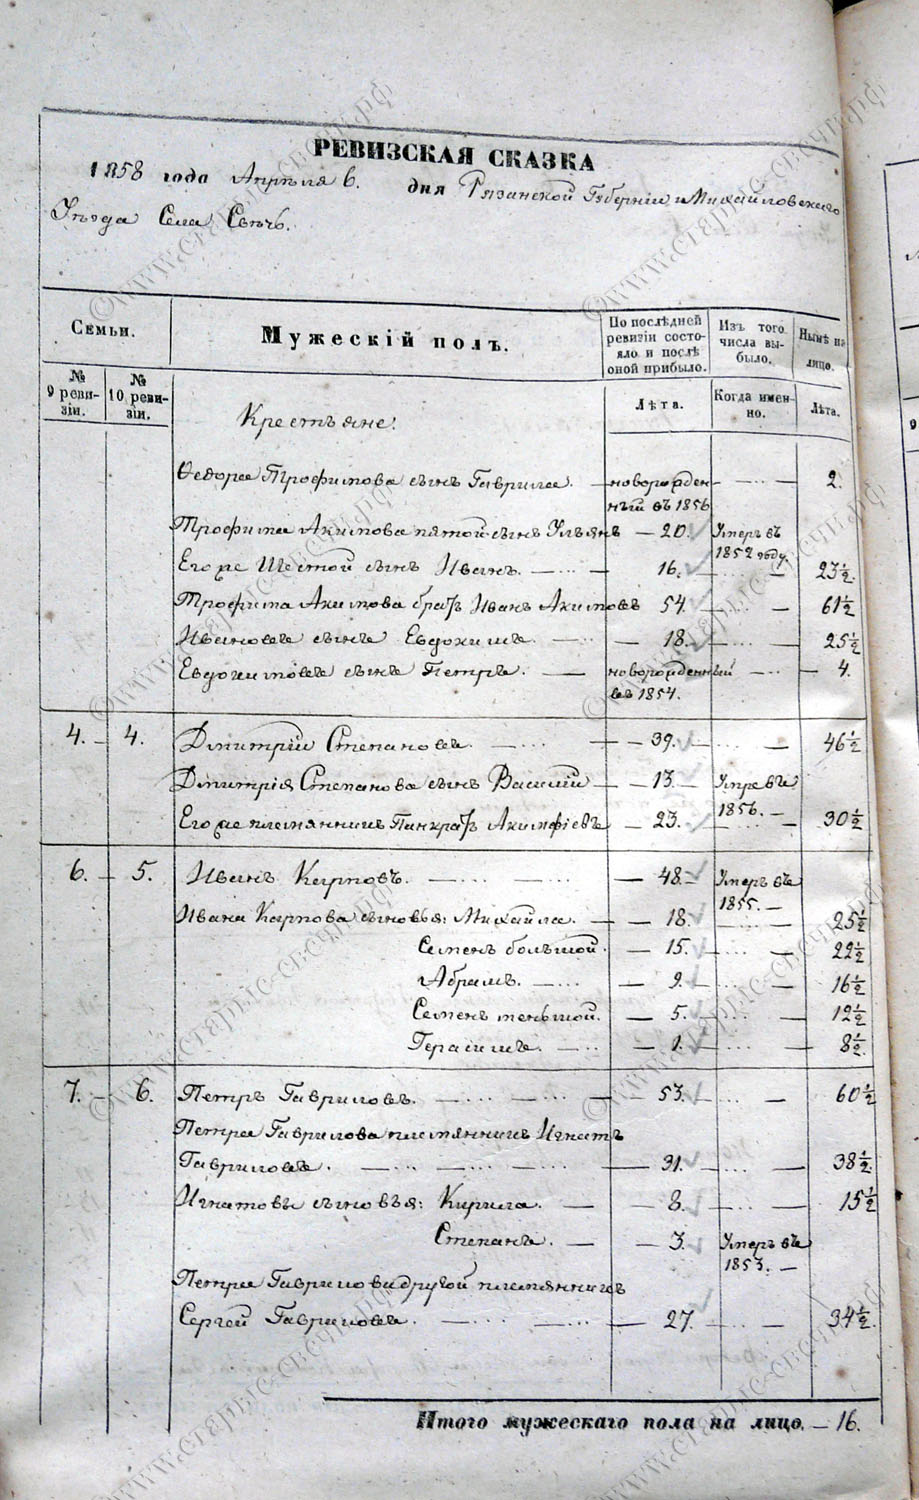 РЕВИЗСКАЯ СКАЗКА
1858 года Апрѣля 6. дня Рязанской Губерніи Михайловскаго
Уѣзда Села Свѣчь.
Семьи.
Мужескій полъ.
По послѣдней ревизіи состояло и послѣ оной прибыло.
Изъ того числа выбыло.
Нынѣ на лицо.
№ 9 ревизіи.
№ 10 ревизіи.
Лѣта.
Когда именно.
Лѣта.
Крестьяне.
Ѳедора Трофимова сынъ Гаврила. — новорожден- — 2.
ный въ 1856
Трофима Акимова пятой сынъ Ульянъ — 20. Умеръ въ
1852 году.
Его же Шестой сынъ Иванъ. — 16. — 23½.
Трофима Акимова братъ Иванъ Акимовъ 54. — 61½
Ивановъ сынъ Евдокимъ. — 18. — 25½
Евдокимовъ сынъ Петръ. — новорожденный — 4.
въ 1854.
4. 4. Дмитрій Степановъ. — 39. — 46½
Дмитрія Степанова сынъ Василій — 13. — Умре въ
1856. —
Его же племянникъ Панкратъ Акимфіевъ — 23. — 30½
6. 5. Иванъ Карповъ. — 48. Умеръ въ
1855. —
Ивана Карпова сыновья: Михайла. — 18. — 25½
Семенъ большой. — 15. — 22½
Абрамъ. — 9. — 16½
Семенъ меньшой. — 5. — 12½
Герасимъ. — 1. — 8½
7. 6. Петръ Гавриловъ. — 53. — 60½
Петра Гаврилова племянникъ Игнатъ
Гавриловъ. — 31. — 38½
Игнатовы сыновья: Кирила. — 8. — 15½
Степанъ. — 3. Умеръ въ
1853. —
Петра Гаврилова другой племянникъ
Сергей Гавриловъ. — 27. — 34½.
Итого мужескаго пола на лицо. — 16.
©www.старые-свечи.рф